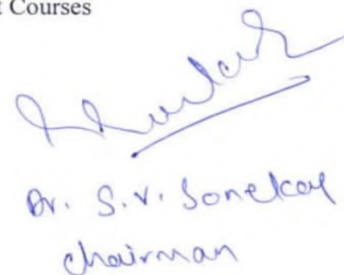 t Courses
Dr. S. V. Sonekar
chairman